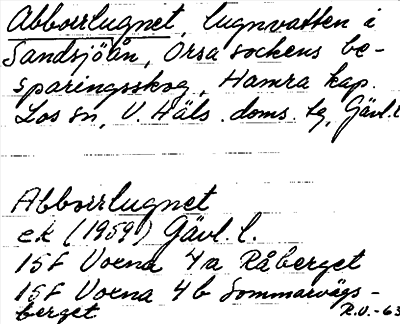 Abborrlugnet, lugnvatten i
Sandsjöån, Orsa sockens be-
sparingsskog, Hamra kap.
Los sn, V. Häls. doms. tg, Gävl. l
Abborrlugnet
ek (1959) Gävl. l.
15F Voxna 4a Råberget
15F Voxna 4b Sommarvägs-
berget
R.U.-63